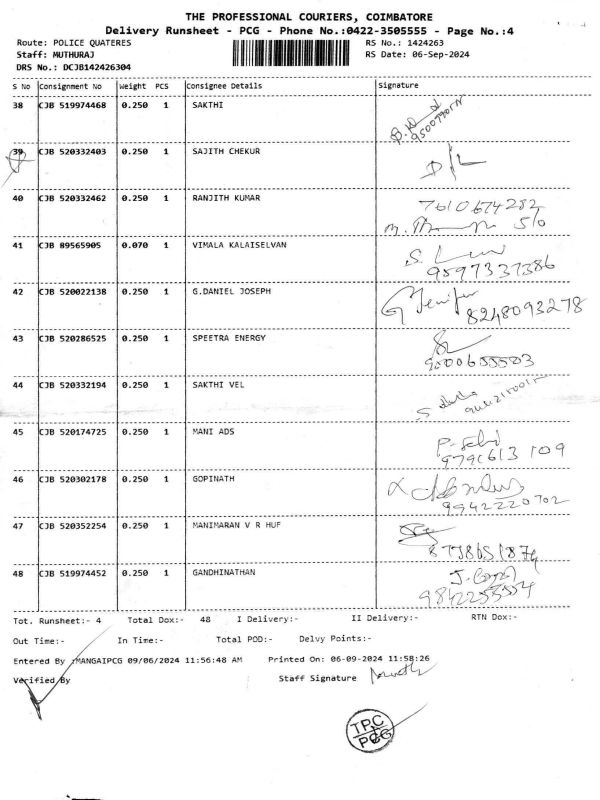 THE PROFESSIONAL COURIERS, COIMBATORE
Delivery Runsheet - PCG - Phone No.:0422-3505555 - Page No.:4
Route: POLICE QUATERES RS No.: 1424263
Staff: MUTHURAJ RS Date: 06-Sep-2024
DRS No.: DCJB142426304
S No Consignment No Weight PCS Consignee Details Signature
38 CJB 519974468 0.250 1 SAKTHI
39 CJB 520332403 0.250 1 SAJITH CHEKUR
40 CJB 520332462 0.250 1 RANJITH KUMAR
7610674282
S/o
41 CJB 89565905 0.070 1 VIMALA KALAISELVAN
9597337386
42 CJB 520022138 0.250 1 G.DANIEL JOSEPH
G Jenifer 8248093278
43 CJB 520286525 0.250 1 SPEETRA ENERGY
44 CJB 520332194 0.250 1 SAKTHI VEL
45 CJB 520174725 0.250 1 MANI ADS
9791613109
46 CJB 520302178 0.250 1 GOPINATH
9942220702
47 CJB 520352254 0.250 1 MANIMARAN V R HUF
48 CJB 519974452 0.250 1 GANDHINATHAN
9842255554
Tot. Runsheet:- 4 Total Dox:- 48 I Delivery:- II Delivery:- RTN Dox:-
Out Time:- In Time:- Total POD:- Delvy Points:-
Entered By :MANGAIPCG 09/06/2024 11:56:48 AM Printed On: 06-09-2024 11:58:26
Verified By Staff Signature
TPC
PCG